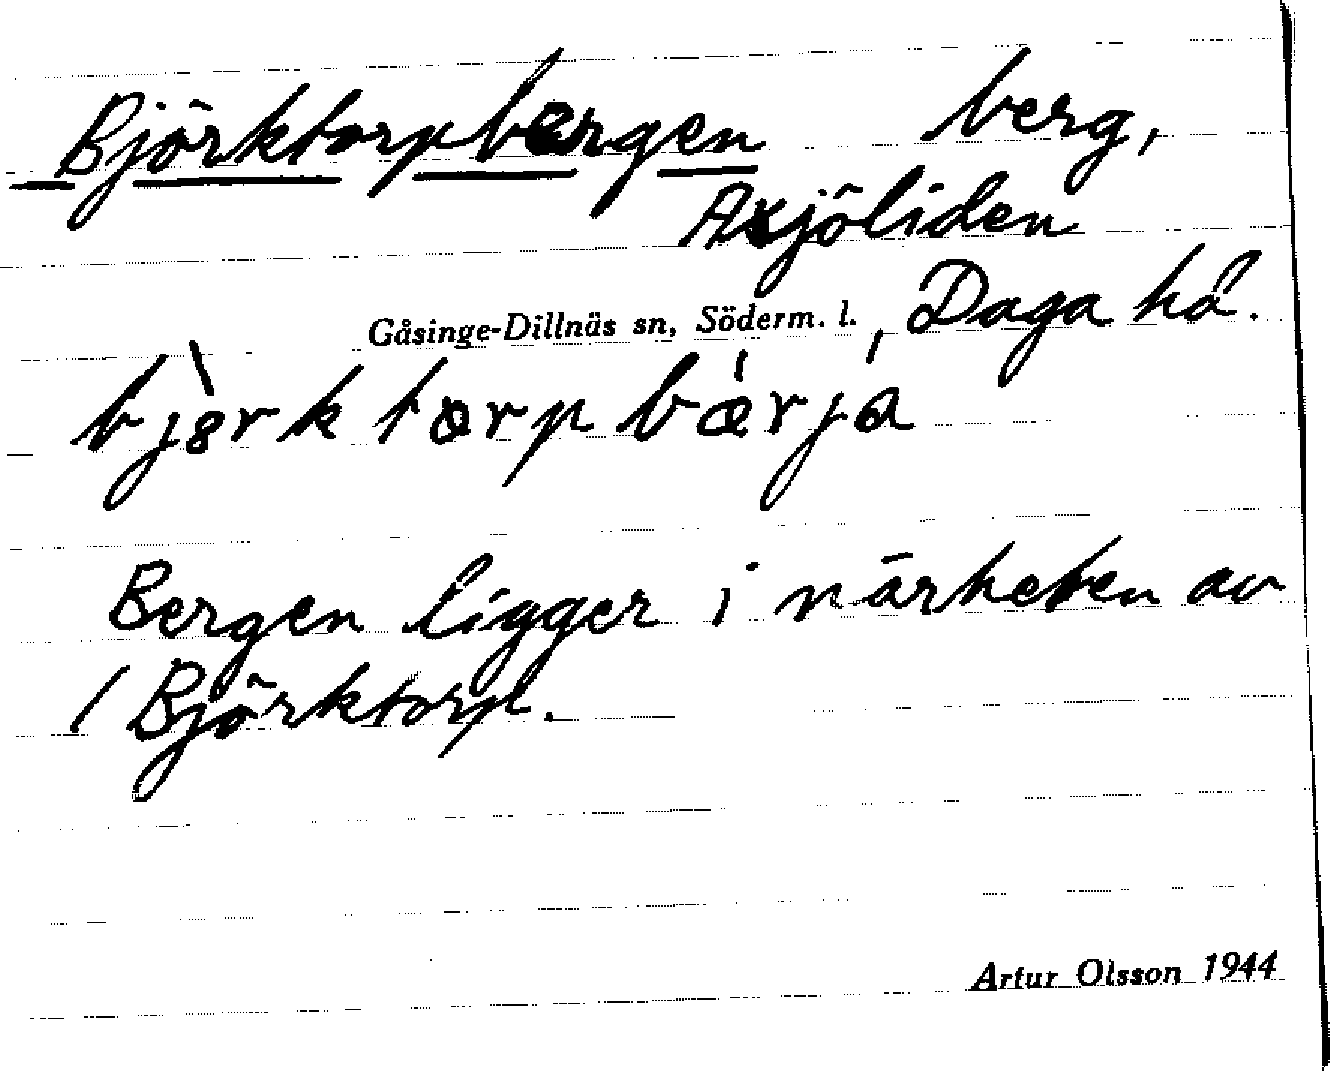 Björktorpbergen berg,
Axjöliden
Gåsinge-Dillnäs sn, Söderm. l., Daga hd.
bjò̀rktorpbǽrja
Bergen ligger i närheten av
/ Björktorp.
Artur Olsson 1944